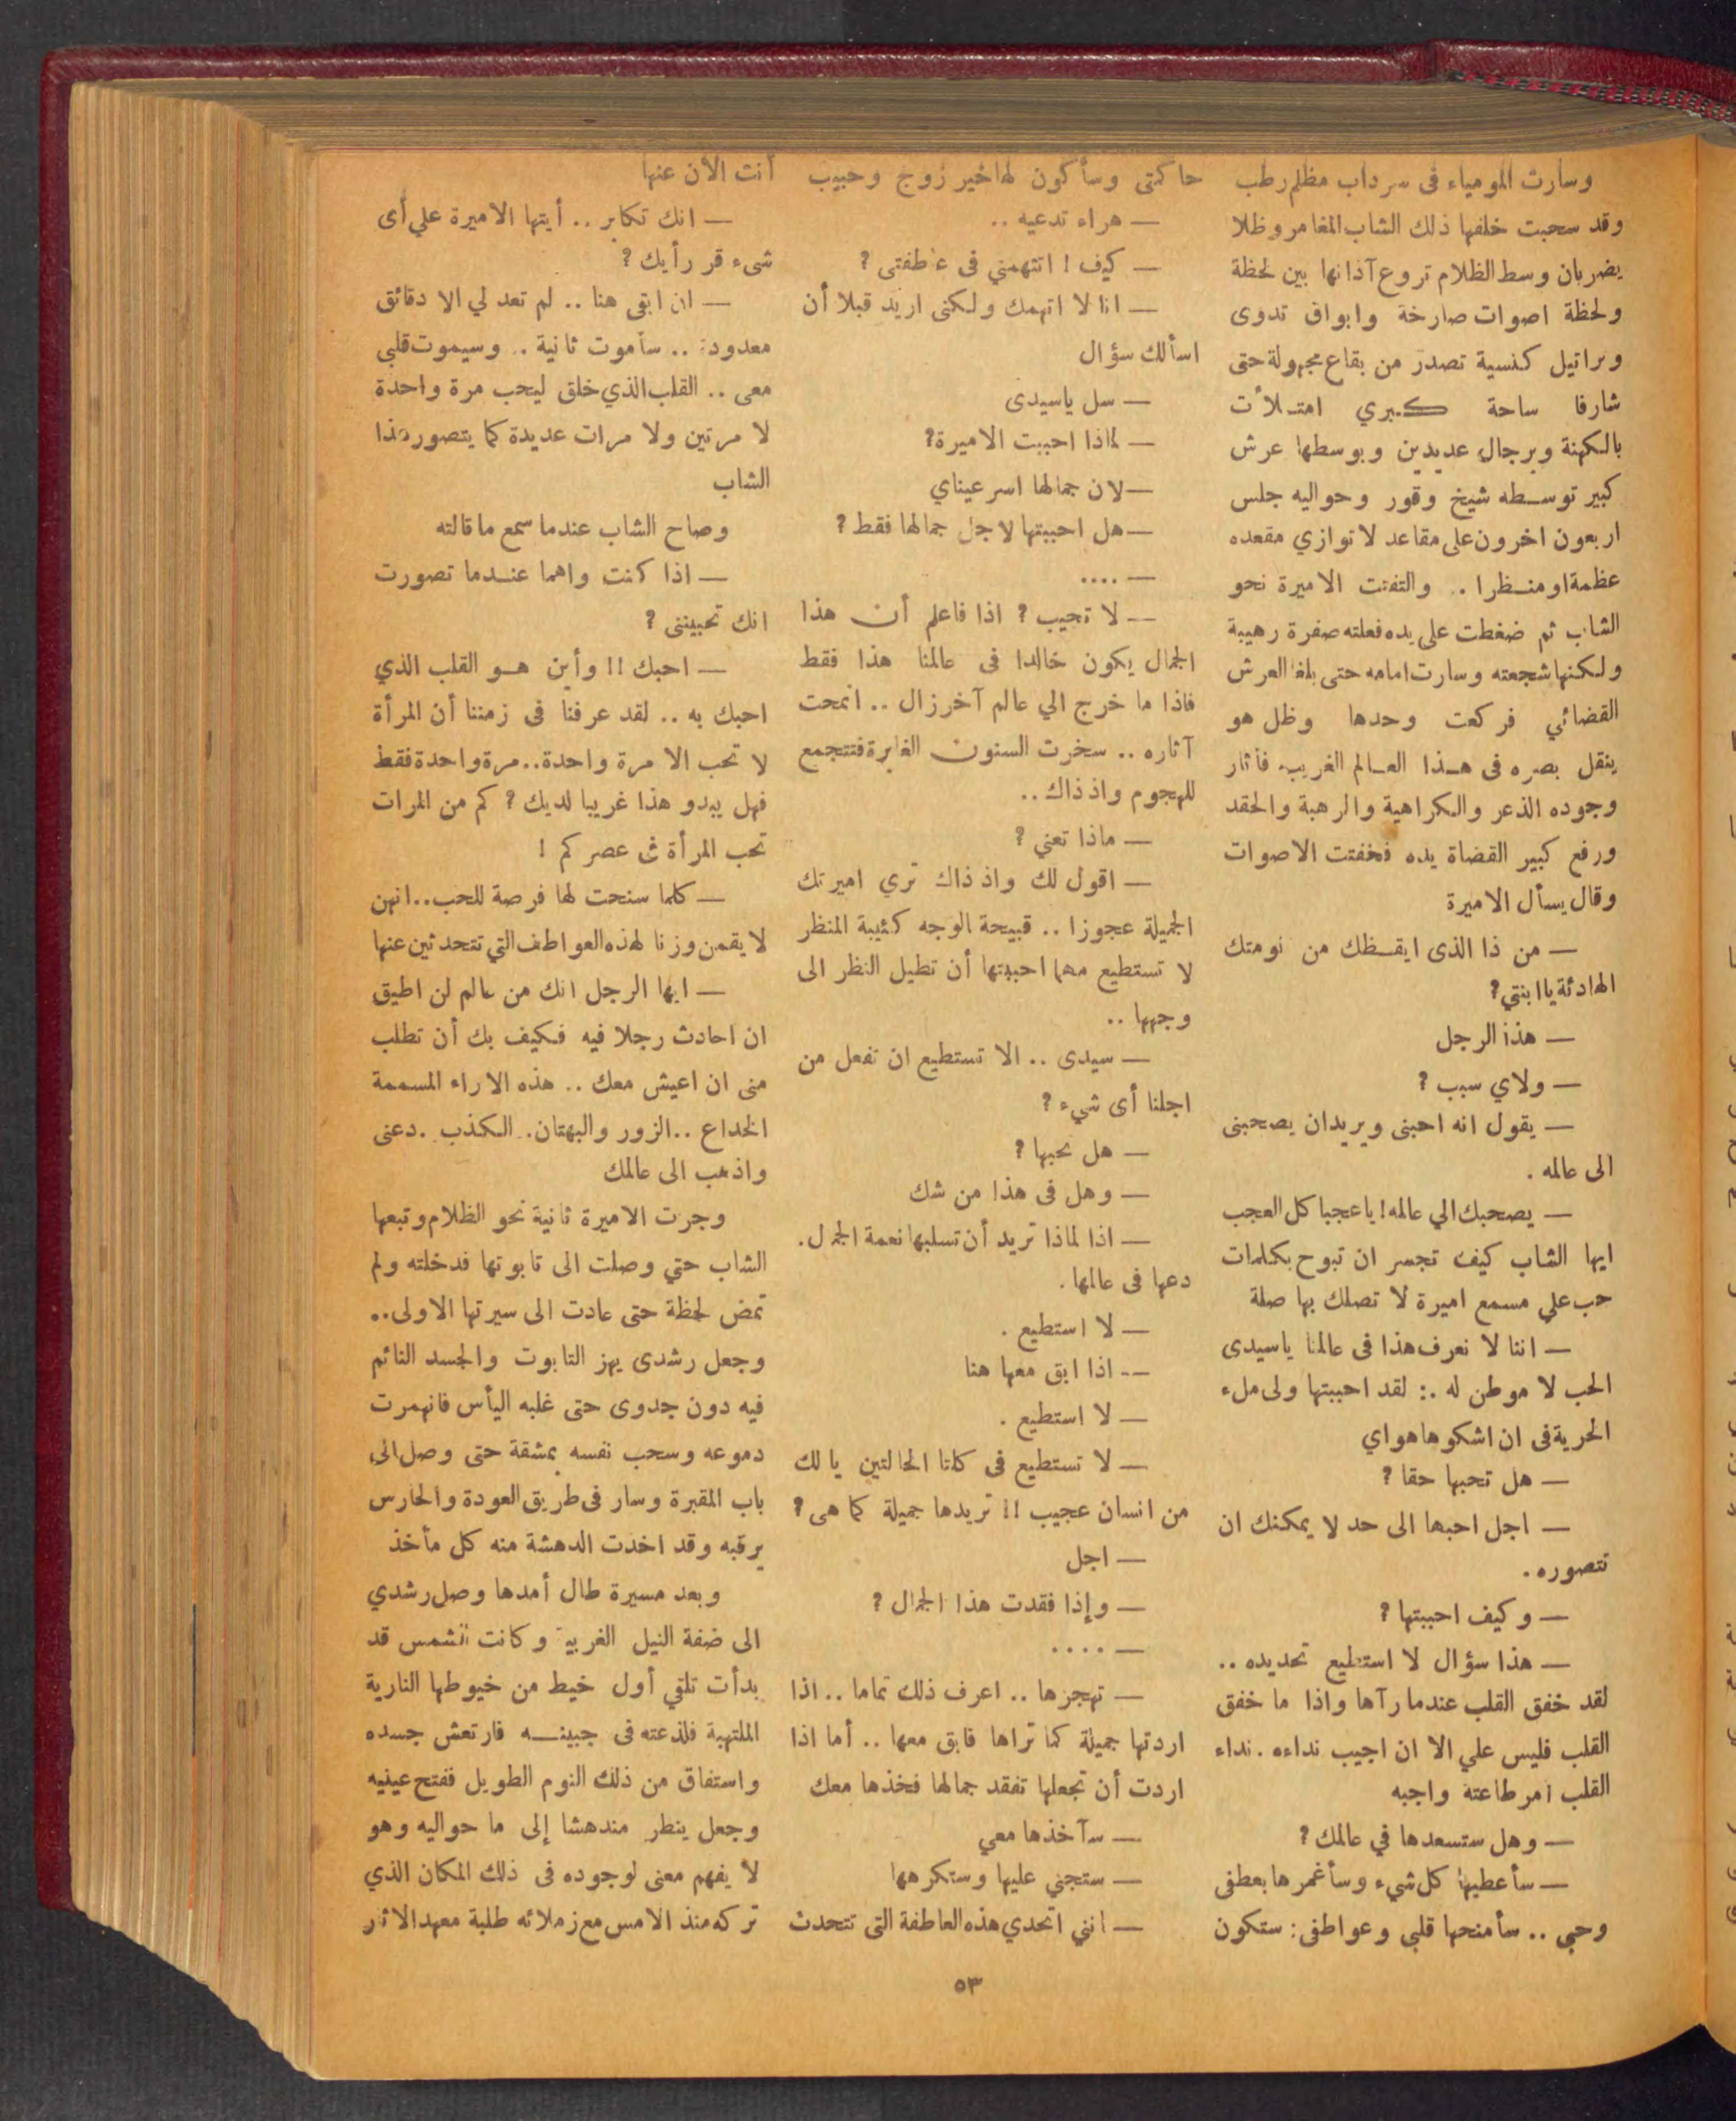 وسارت المومياء فى سرداب مظلم رطب
وقد سحبت خلفها ذلك الشاب المغامر وظلا
يضربان وسط الظلام تروع آذانها بين لحظة
ولحظة اصوات صارخة وابواق تدوى
وتراتيل كنسية تصدر من بقاع مجهولة حتى
شارفا ساحة كبري امتلأت
بالكهنة وبرجال عديدين وبوسطها عرش
كبير توسطه شيخ وقور وحواليه جلس
اربعون اخرون على مقاعد لا توازي مقعده
عظمة او منظرا .. والتفتت الاميرة نحو
الشاب ثم ضغطت على يده فعلته صفرة رهيبة
ولكنها شجعته وسارت امامه حتى بلغا العرش
القضائي فركعت وحدها وظل هو
ينقل بصره فى هذا العالم الغريب. فأثار
وجوده الذعر والكراهية والرهبة والحقد
ورفع كبير القضاة يده فخفتت الاصوات
وقال يسأل الاميرة
— من ذا الذى ايقظك من نومتك
الهادئة يا ابنتي؟
— هذا الرجل
— ولاي سبب ؟
— يقول انه احبنى ويريدان يصحبنى
الى عالمه .
— يصحبك الي عالمه! ياعجبا كل العجب
ايها الشاب كيف تجسر ان تبوح بكلمات
حب علي مسمع اميرة لا تصلك بها صلة
— اننا لا نعرف هذا فى عالمنا ياسيدى
الحب لا موطن له .: لقد احببتها ولى ملء
الحرية فى ان اشكوها هواي
— هل تحبها حقا ؟
— اجل احبها الى حد لا يمكنك ان
تتصوره .
— وكيف احببتها ؟
— هذا سؤال لا استطيع تحديده ..
لقد خفق القلب عندما رآها واذا ما خفق
القلب فليس علي الا ان اجيب نداءه . نداء
القلب أمر طاعته واجبه
— وهل ستسعدها في عالمك ؟
— سأعطيها كل شيء وسأغمرها بعطفى
وحبى .. سأمنحها قلبى وعواطفى: ستكون
حاكمتى وسأكون لها خير زوج وحبيب
— هراء تدعيه ..
— كيف ! اتتهمني فى عاطفتى ؟
— انا لا اتهمك ولكنى اريد قبلا أن
اسألك سؤال
— سل ياسيدى
— لماذا احببت الاميرة؟
— لان جمالها اسر عيناي
— هل احببتها لاجل جمالها فقط ؟
— ....
— لا تجيب ؟ اذا فاعلم أن هذا
الجمال يكون خالدا فى عالمنا هذا فقط
فاذا ما خرج الي عالم آخر زال .. انمحت
آثاره .. سخرت السنون الغابرة فتتجمع
للهجوم واذ ذاك ..
— ماذا تعني ؟
— اقول لك واذ ذاك تري اميرتك
الجميلة عجوزا .. قبيحة الوجه كئيبة المنظر
لا تستطيع مهما احببتها أن تطيل النظر الى
وجهها ..
— سيدى .. الا تستطيع ان تفعل من
اجلنا أى شيء ؟
— هل تحبها ؟
— وهل فى هذا من شك
— اذا لماذا تريد أن تسلبها نعمة الجمال.
دعها فى عالمها .
— لا استطيع .
— اذا ابق معها هنا
— لا استطيع .
— لا تستطيع فى كلتا الحالتين يا لك
من انسان عجيب !! تريدها جميلة كما هى ؟
— اجل
— وإذا فقدت هذا الجمال ؟
— ....
— تهجرها .. اعرف ذلك تماما .. اذا
اردتها جميلة كما تراها فابق معها .. أما اذا
اردت أن تجعلها تفقد جمالها فخذها معك
— سآخذها معي
— ستجني عليها وستكرهها
— انني اتحدي هذه العاطفة التى تتحدث
أنت الآن عنها
— انك تكابر .. أيتها الاميرة علي أى
شىء قر رأيك ؟
— ان ابقى هنا .. لم تعد لي الا دقائق
معدودة .. سأموت ثانية .. وسيموت قلبي
معى .. القلب الذي خلق ليحب مرة واحدة
لا مرتين ولا مرات عديدة كما يتصور هذا
الشاب
وصاح الشاب عندما سمع ما قالته
— اذا كنت واهما عندما تصورت
انك تحبيننى ؟
— احبك !! وأين هو القلب الذي
احبك به .. لقد عرفنا فى زمننا أن المرأة
لا تحب الا مرة واحدة..مرة واحدة فقط
فهل يبدو هذا غريبا لديك ؟ كم من المرات
تحب المرأة فى عصركم !
— كلما سنحت لها فرصة للحب..انهن
لا يقمن وزنا لهذه العواطف التي تتحدثين عنها
— ايها الرجل انك من عالم لن اطيق
ان احادث رجلا فيه فكيف بك أن تطلب
منى ان اعيش معك .. هذه الاراء المسممة
الخداع ..الزور والبهتان. الكذب .دعنى
واذهب الى عالمك
وجرت الاميرة ثانية نحو الظلام وتبعها
الشاب حتي وصلت الى تابوتها فدخلته ولم
تمض لحظة حتى عادت الى سيرتها الاولى..
وجعل رشدى يهز التابوت والجسد النائم
فيه دون جدوى حتى غلبه اليأس فانهمرت
دموعه وسحب نفسه بمشقة حتى وصل الى
باب المقبرة وسار فى طريق العودة والحارس
يرقبه وقد اخذت الدهشة منه كل مأخذ
وبعد مسيرة طال أمدها وصل رشدي
الى ضفة النيل الغربية وكانت الشمس قد
بدأت تلقي أول خيط من خيوطها النارية
الملتهبة فلذعته فى جبينه فارتعش جسده
واستفاق من ذلك النوم الطويل ففتح عينيه
وجعل ينظر مندهشا إلى ما حواليه وهو
لا يفهم معنى لوجوده فى ذلك المكان الذي
تركه منذ الامس مع زملائه طلبة معهد الاثار
٥٣